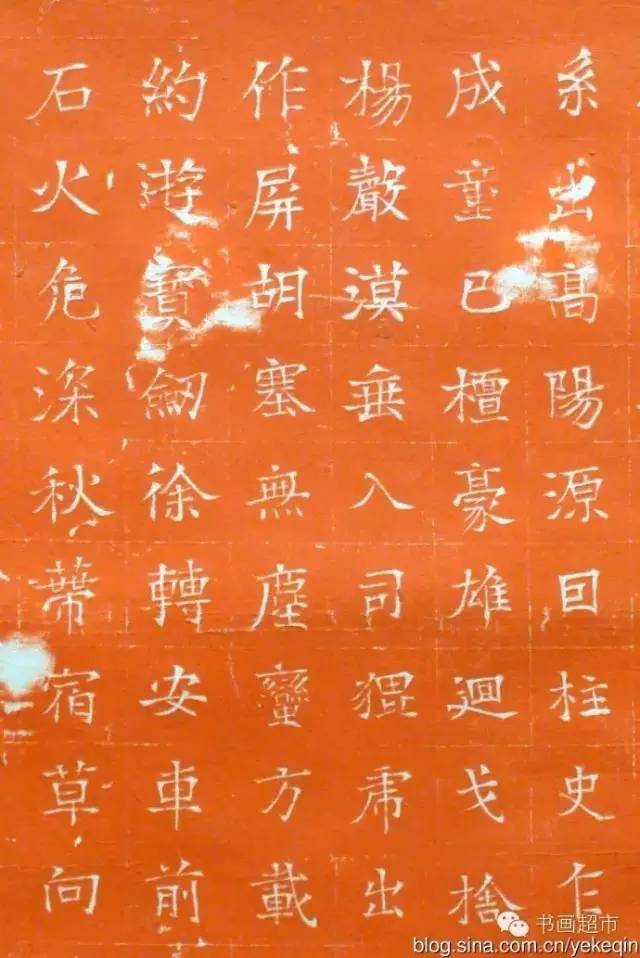 系出髙陽源回柱史乍
成童已檀豪雄迴戈捨
楊聲漠垂入司猥出
作屏胡塞無塵蠻方載
約遊寶劒徐轉安車前
石火危深秋蔕宿草向
书画超市
blog.sina.com.cn/yekeqin